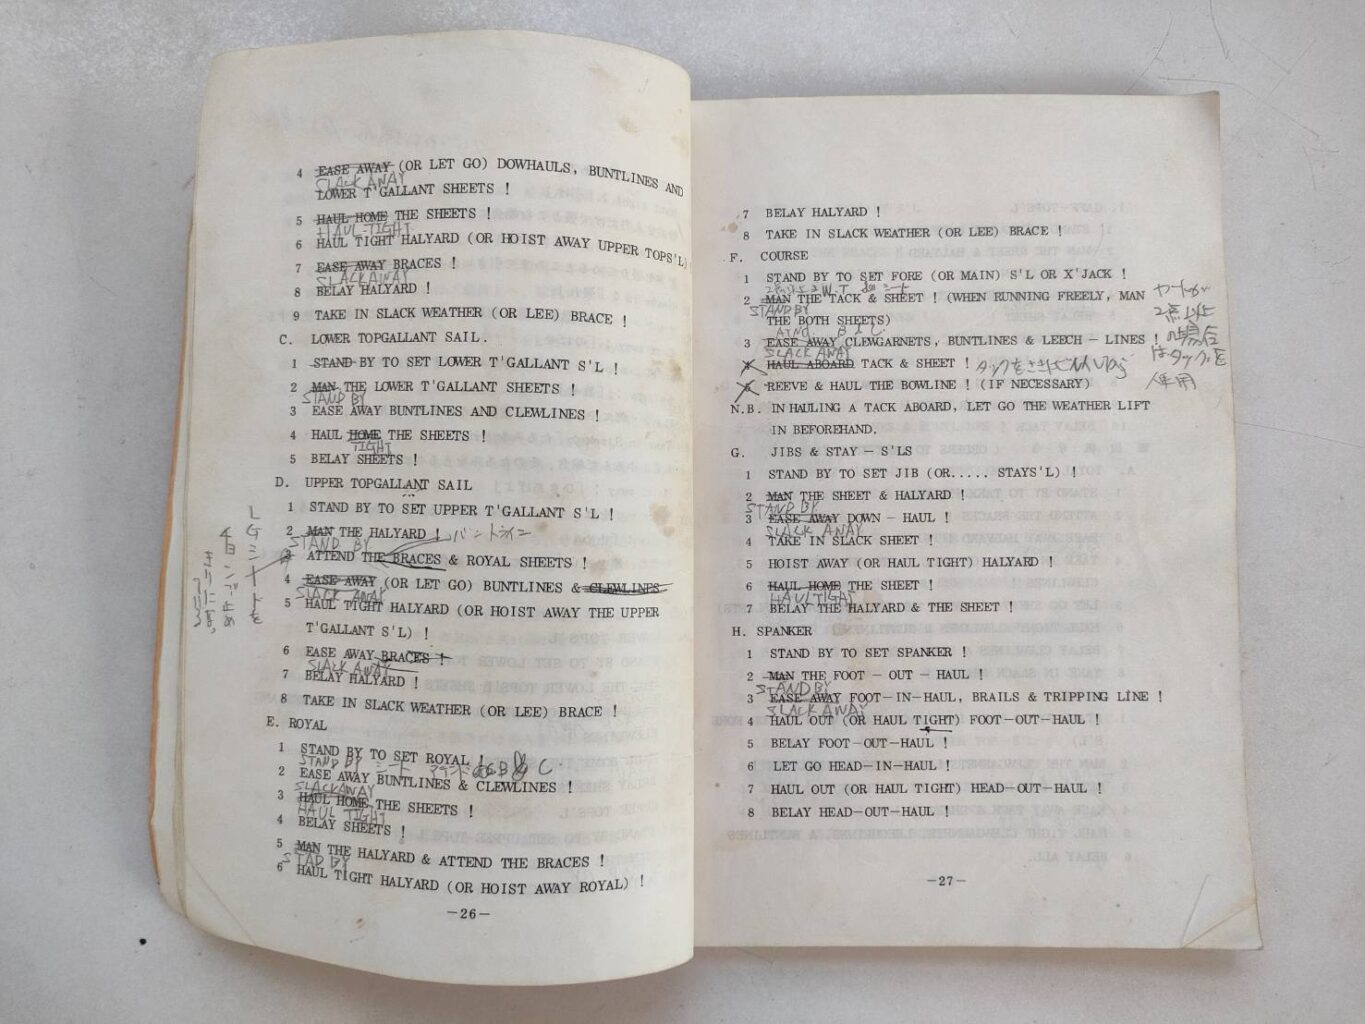 4 EASE AWAY (OR LET GO) DOWHAULS, BUNTLINES AND
SLACK AWAY
LOWER T'GALLANT SHEETS !
5 HAUL HOME THE SHEETS !
HAUL TIGHT
6 HAUL TIGHT HALYARD (OR HOIST AWAY UPPER TOPS'L)
7 EASE AWAY BRACES !
SLACK AWAY
8 BELAY HALYARD !
9 TAKE IN SLACK WEATHER (OR LEE) BRACE !
C. LOWER TOPGALLANT SAIL.
1 STAND BY TO SET LOWER T'GALLANT S'L !
2 MAN THE LOWER T'GALLANT SHEETS !
STAND BY
3 EASE AWAY BUNTLINES AND CLEWLINES !
4 HAUL HOME THE SHEETS !
TIGHT
5 BELAY SHEETS !
D. UPPER TOPGALLANT SAIL
1 STAND BY TO SET UPPER T'GALLANT S'L !
2 MAN THE HALYARD ! バントライン
STAND BY
3 ATTEND THE BRACES & ROYAL SHEETS !
4 EASE AWAY (OR LET GO) BUNTLINES & CLEWLINES
SLACK AWAY
5 HAUL TIGHT HALYARD (OR HOIST AWAY THE UPPER
T'GALLANT S'L) !
6 EASE AWAY BRACES !
SLACK AWAY
7 BELAY HALYARD !
8 TAKE IN SLACK WEATHER (OR LEE) BRACE !
E. ROYAL
1 STAND BY TO SET ROYAL !
STAND BY シート
2 EASE AWAY BUNTLINES & CLEWLINES !
SLACK AWAY
3 HAUL HOME THE SHEETS !
HAUL TIGHT
4 BELAY SHEETS !
5 MAN THE HALYARD & ATTEND THE BRACES !
STAD BY
6 HAUL TIGHT HALYARD (OR HOIST AWAY ROYAL) !
—26—
7 BELAY HALYARD !
8 TAKE IN SLACK WEATHER (OR LEE) BRACE !
F. COURSE
1 STAND BY TO SET FORE (OR MAIN) S'L OR X'JACK !
2 MAN THE TACK & SHEET ! (WHEN RUNNING FREELY, MAN
STAND BY
THE BOTH SHEETS)
3 EASE AWAY CLEWGARNETS, BUNTLINES & LEECH-LINES !
SLACK AWAY
4 HAUL ABOARD TACK & SHEET !
5 REEVE & HAUL THE BOWLINE ! (IF NECESSARY)
使用
N.B. IN HAULING A TACK ABOARD, LET GO THE WEATHER LIFT
IN BEFOREHAND.
G. JIBS & STAY-S'LS
1 STAND BY TO SET JIB (OR..... STAYS'L) !
2 MAN THE SHEET & HALYARD !
STAND BY
3 EASE AWAY DOWN-HAUL !
SLACK AWAY
4 TAKE IN SLACK SHEET !
5 HOIST AWAY (OR HAUL TIGHT) HALYARD !
6 HAUL HOME THE SHEET !
HAUL TIGHT
7 BELAY THE HALYARD & THE SHEET !
H. SPANKER
1 STAND BY TO SET SPANKER !
2 MAN THE FOOT-OUT-HAUL !
STAND BY
3 EASE AWAY FOOT-IN-HAUL, BRAILS & TRIPPING LINE !
SLACK AWAY
4 HAUL OUT (OR HAUL TIGHT) FOOT-OUT-HAUL !
5 BELAY FOOT-OUT-HAUL !
6 LET GO HEAD-IN-HAUL !
7 HAUL OUT (OR HAUL TIGHT) HEAD-OUT-HAUL !
8 BELAY HEAD-OUT-HAUL !
—27—